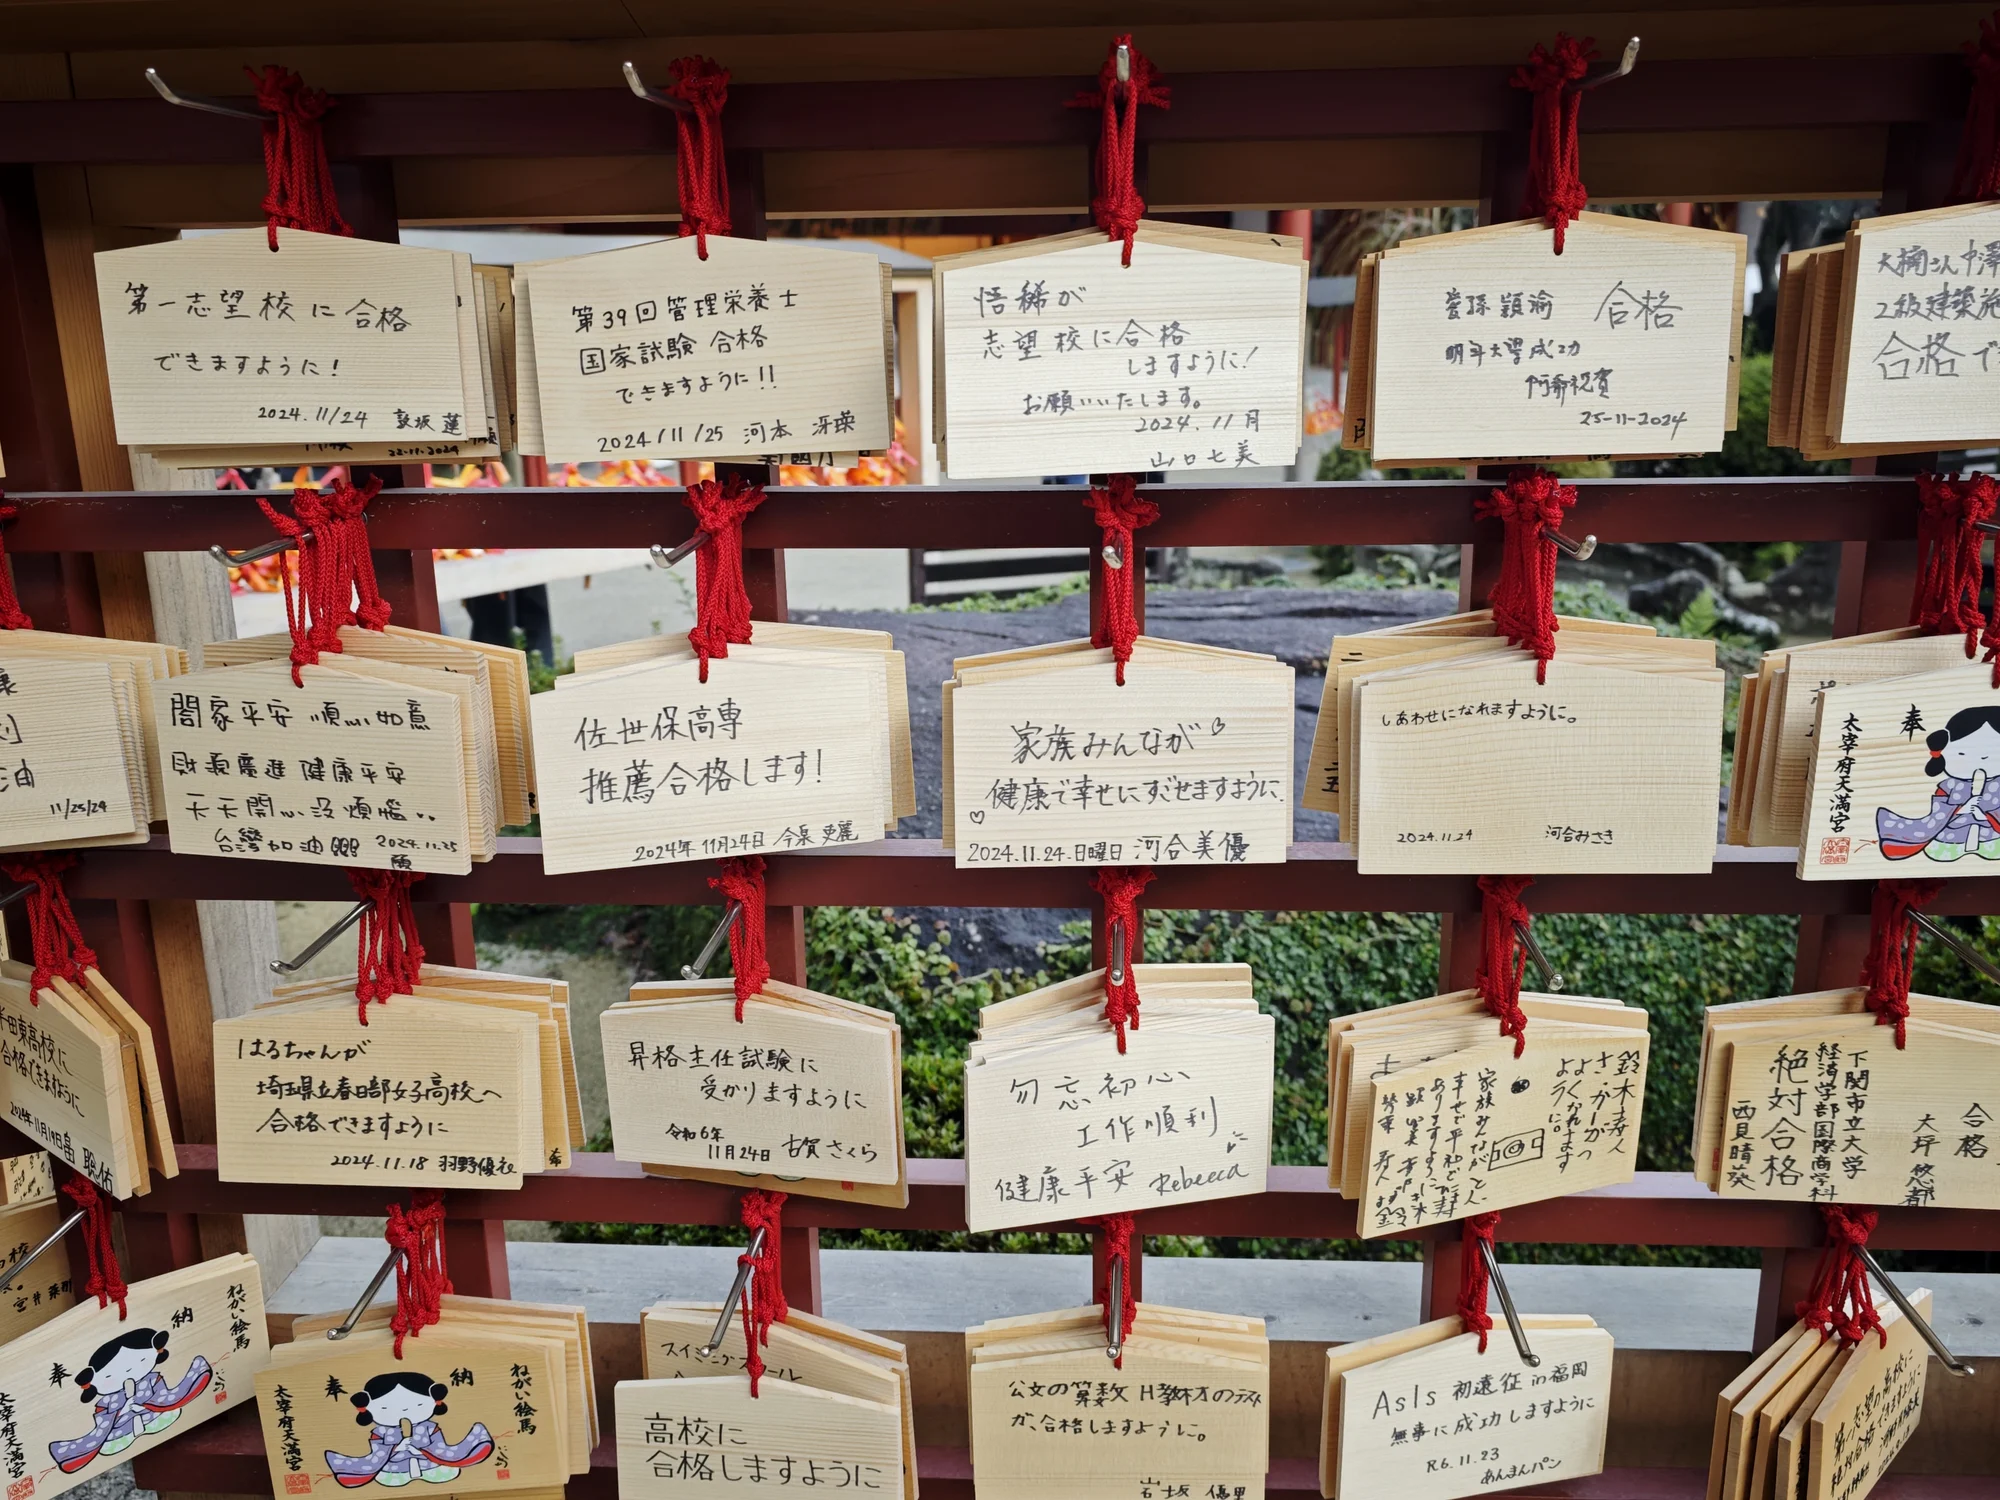 第一志望校に合格
できますように!
2024.11/24
22-11-2024
第39回管理栄養士
国家試験 合格
できますように!!
2024/11/25 河本 冴瑛
悟稀が
志望校に合格
しますように!
お願いいたします。
2024.11月
山口七美
合格
明年大學成功
阿爺祝賀
25-11-2024
2級建築施
合格で
油
11/25/24
闔家平安 順心如意
財源廣進 健康平安
天天開心沒煩惱
台灣加油 2024.11.25
佐世保高専
推薦合格します!
2024年 11月24日 今泉 吏麗
家族みんなが
健康で幸せにすごせますように.
2024.11.24.日曜日 河合美優
しあわせになれますように。
2024.11.24 河合みさき
奉
太宰府天満宮
半田東高校に
合格できますように
2024年11月19日
はるちゃんが
埼玉県立春日部女子高校へ
合格できますように
2024.11.18 羽野優衣
昇格主任試験に
受かりますように
令和6年
11月24日 古賀さくら
勿忘初心
工作順利
健康平安 Rebecca
鈴木寿人
さっかーがつ
よくなれます
ように。
家族みんながで
合格
大坪悠都
下関市立大学
経済学部国際商学科
絶対合格
西見晴葵
奉納
ねがい絵馬
太宰府天満宮
奉納
ねがい絵馬
太宰府天満宮
スイミングスクール
高校に
合格しますように
公文の算数H教材のテスト
が、合格しますように。
岩坂 優里
AsIs 初遠征 in 福岡
無事に成功しますように
R6.11.23
あんまんパン